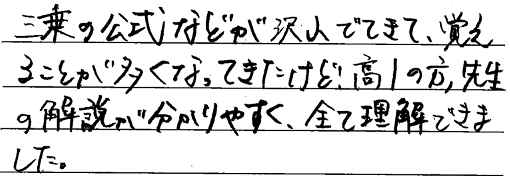 三乗の公式などが沢山でてきて、覚え
ることが多くなってきたけど、高1の方、先生
の解説が分かりやすく、全て理解できま
した。